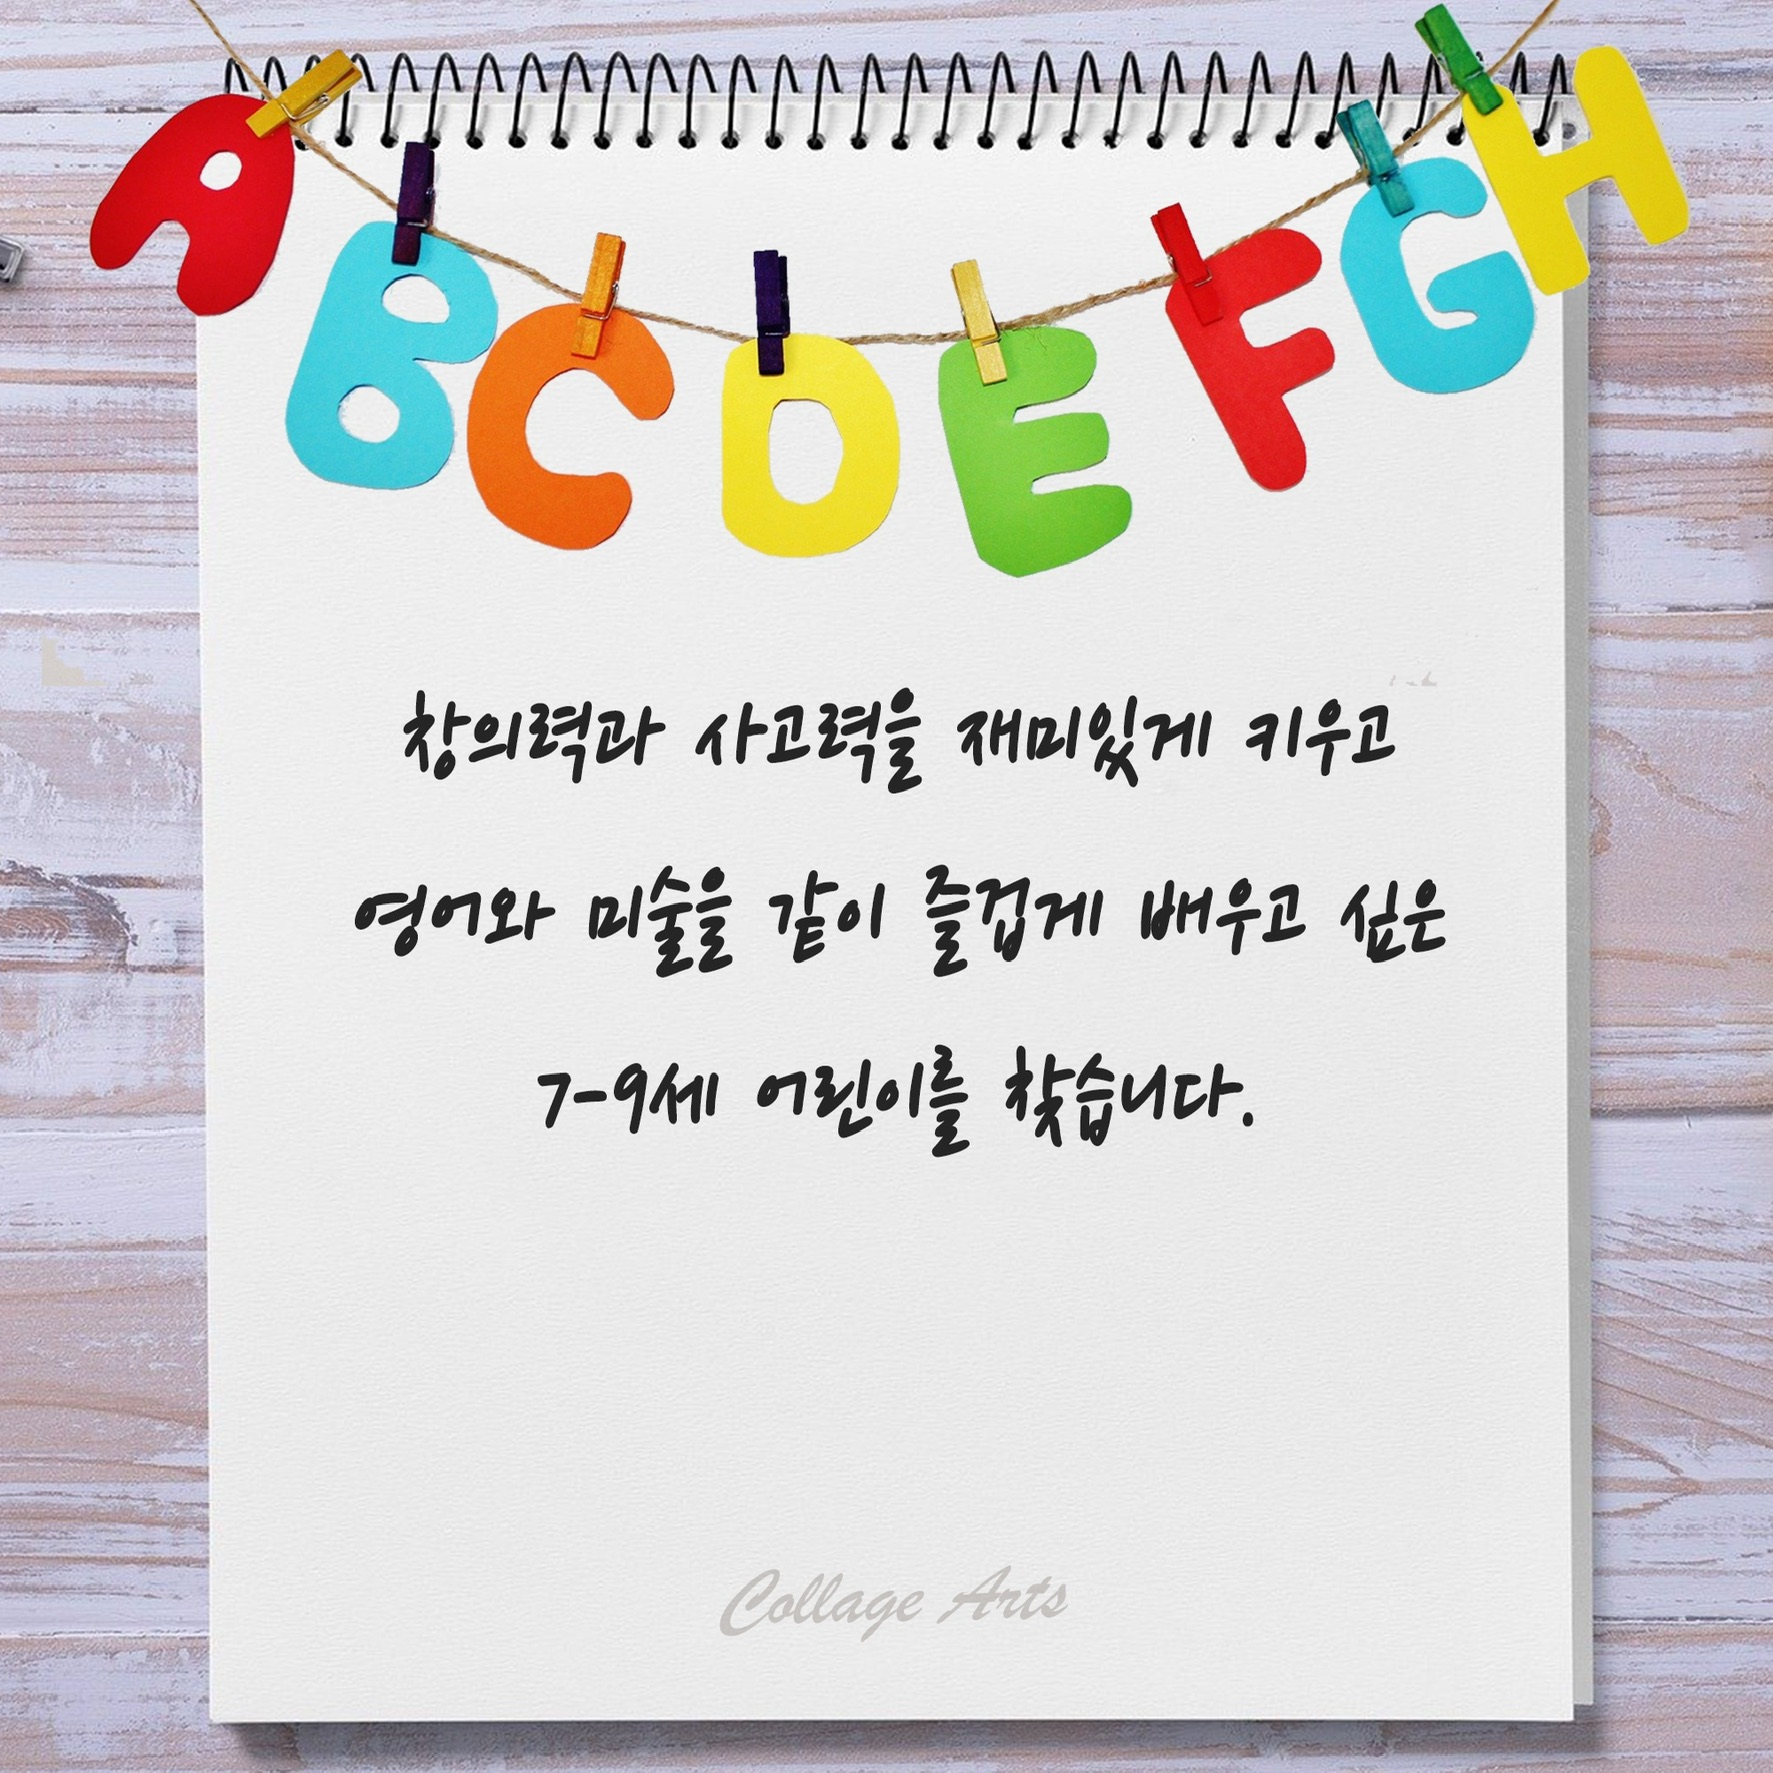 ABCDEFGH
창의력과 사고력을 재미있게 키우고
영어와 미술을 같이 즐겁게 배우고 싶은
7-9세 어린이를 찾습니다.
Collage Arts